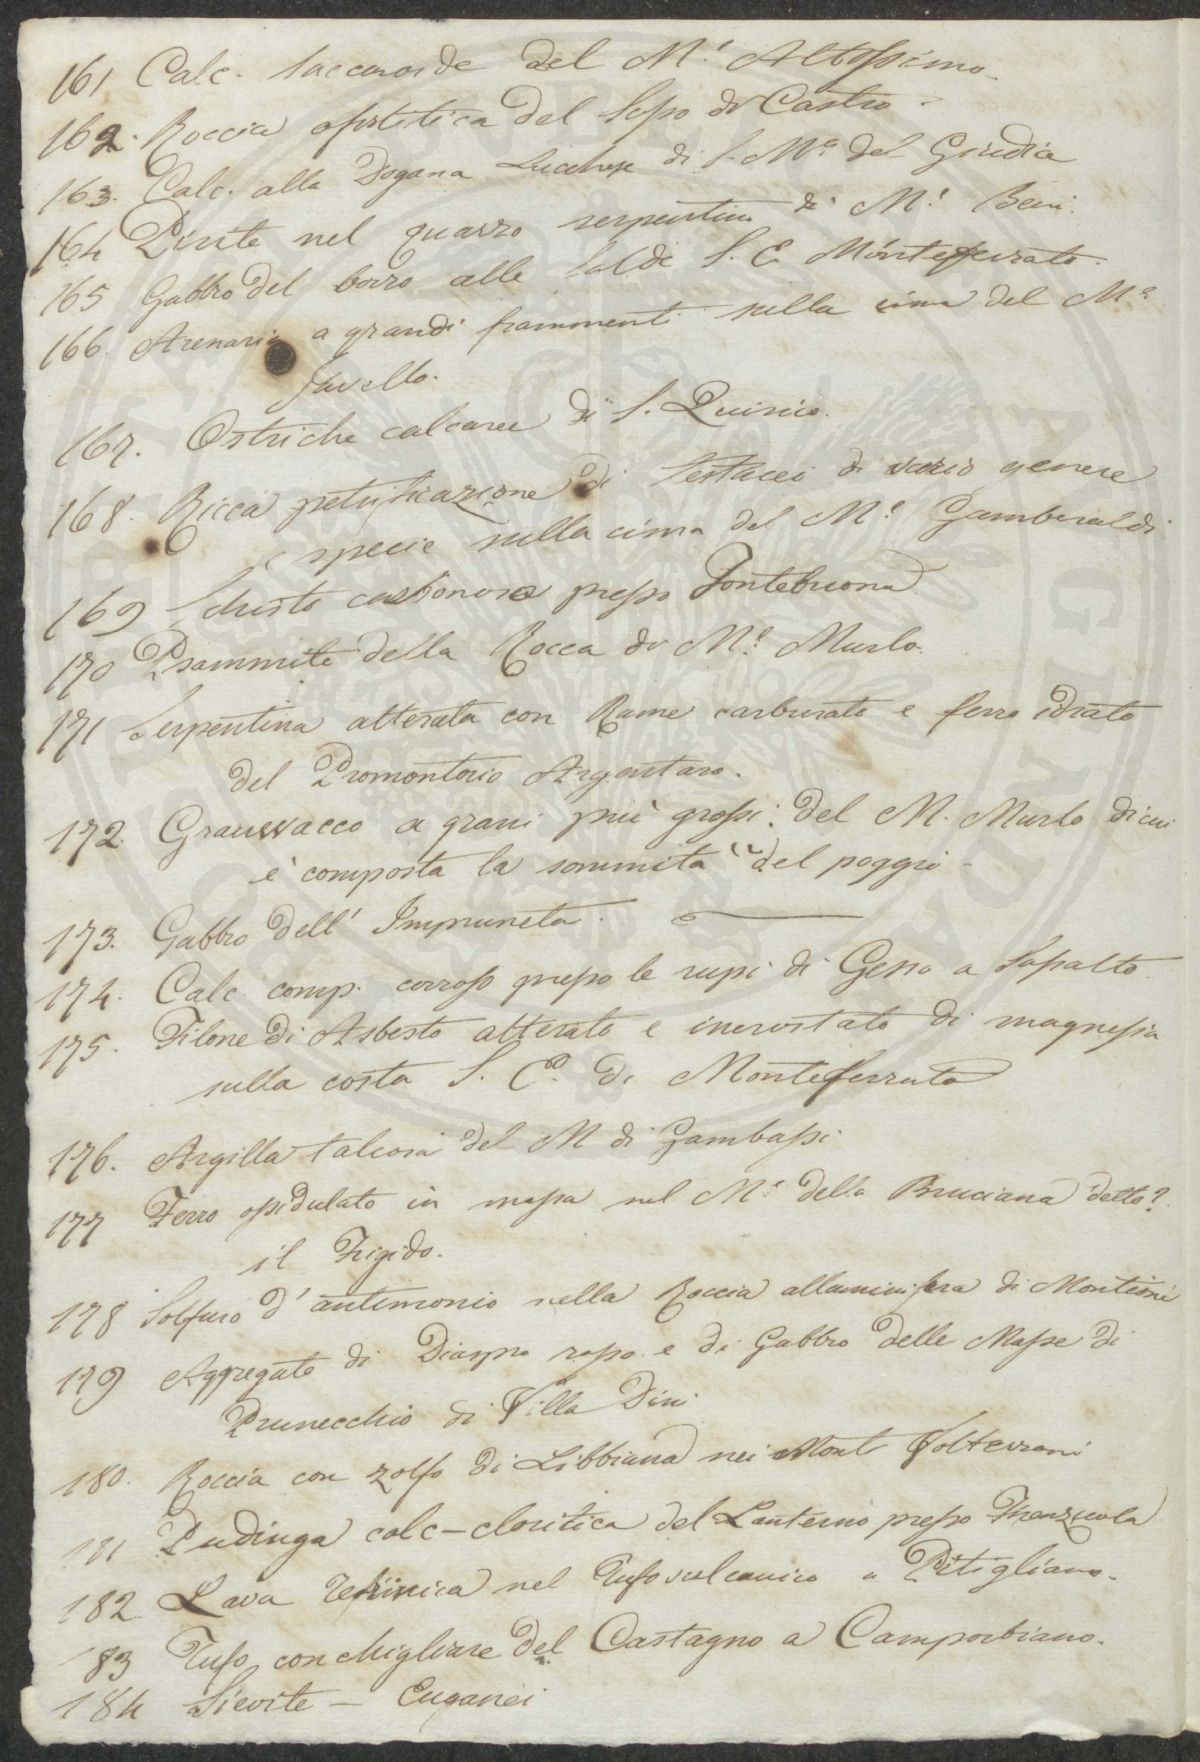 161 Calc. saccaroide del M.t Altissimo.
162. Roccia ofitica del Sasso di Castro.
163. Calc. alla Dogana Lucchese di S. M.a del Giudice
164 Pirite nel quarzo serpentino di M.t Beni.
165 Gabbro del borro alle falde S. E. Monteferrato.
166. Arenaria a grandi frammenti sulla cima del M.e
Javello.
167. Ostriche calcaree di S. Quirico.
168. Ricca petrificazione di testacei di vario genere
e specie sulla cima del M.e Gamberaldi
169 Schisto carbonoso presso Fontebuona
170 Psammite della Rocca di M.e Murlo.
171 Serpentina alterata con Rame carburato e ferro idrato
del Promontorio Argentaro.
172. Grauwacco a grani più grossi: del M. Murlo di cui
è composta la sommità del poggio.
173. Gabbro dell' Impruneta.
174. Calc. comp. corroso presso le rupi di Gesso a Sassalto.
175. Filone di Asbesto alterato e incrostato di magnesia
sulla costa S. E. di Monteferrato
176. Argilla talcosa del M di Gambassi
177 Ferro ossidulato in massa nel M.e della Bruciana detto?
il Frigido.
178 Solfuro d' antimonio nella Roccia alluminifera di Montioni
179 Aggregato di Diaspro rosso e di Gabbro delle Masse di
Prunecchio di Villa Dini
180. Roccia con zolfo di Libbiana nei Monti Volterrani
181 Pudinga calc-cloritica del Santerno presso Firenzuola
182. Lava nel Tufo vulcanico a Pitigliano.
183 Tufo conchigliare del Castagno a Camporbiano.
184 Sievite – Euganei